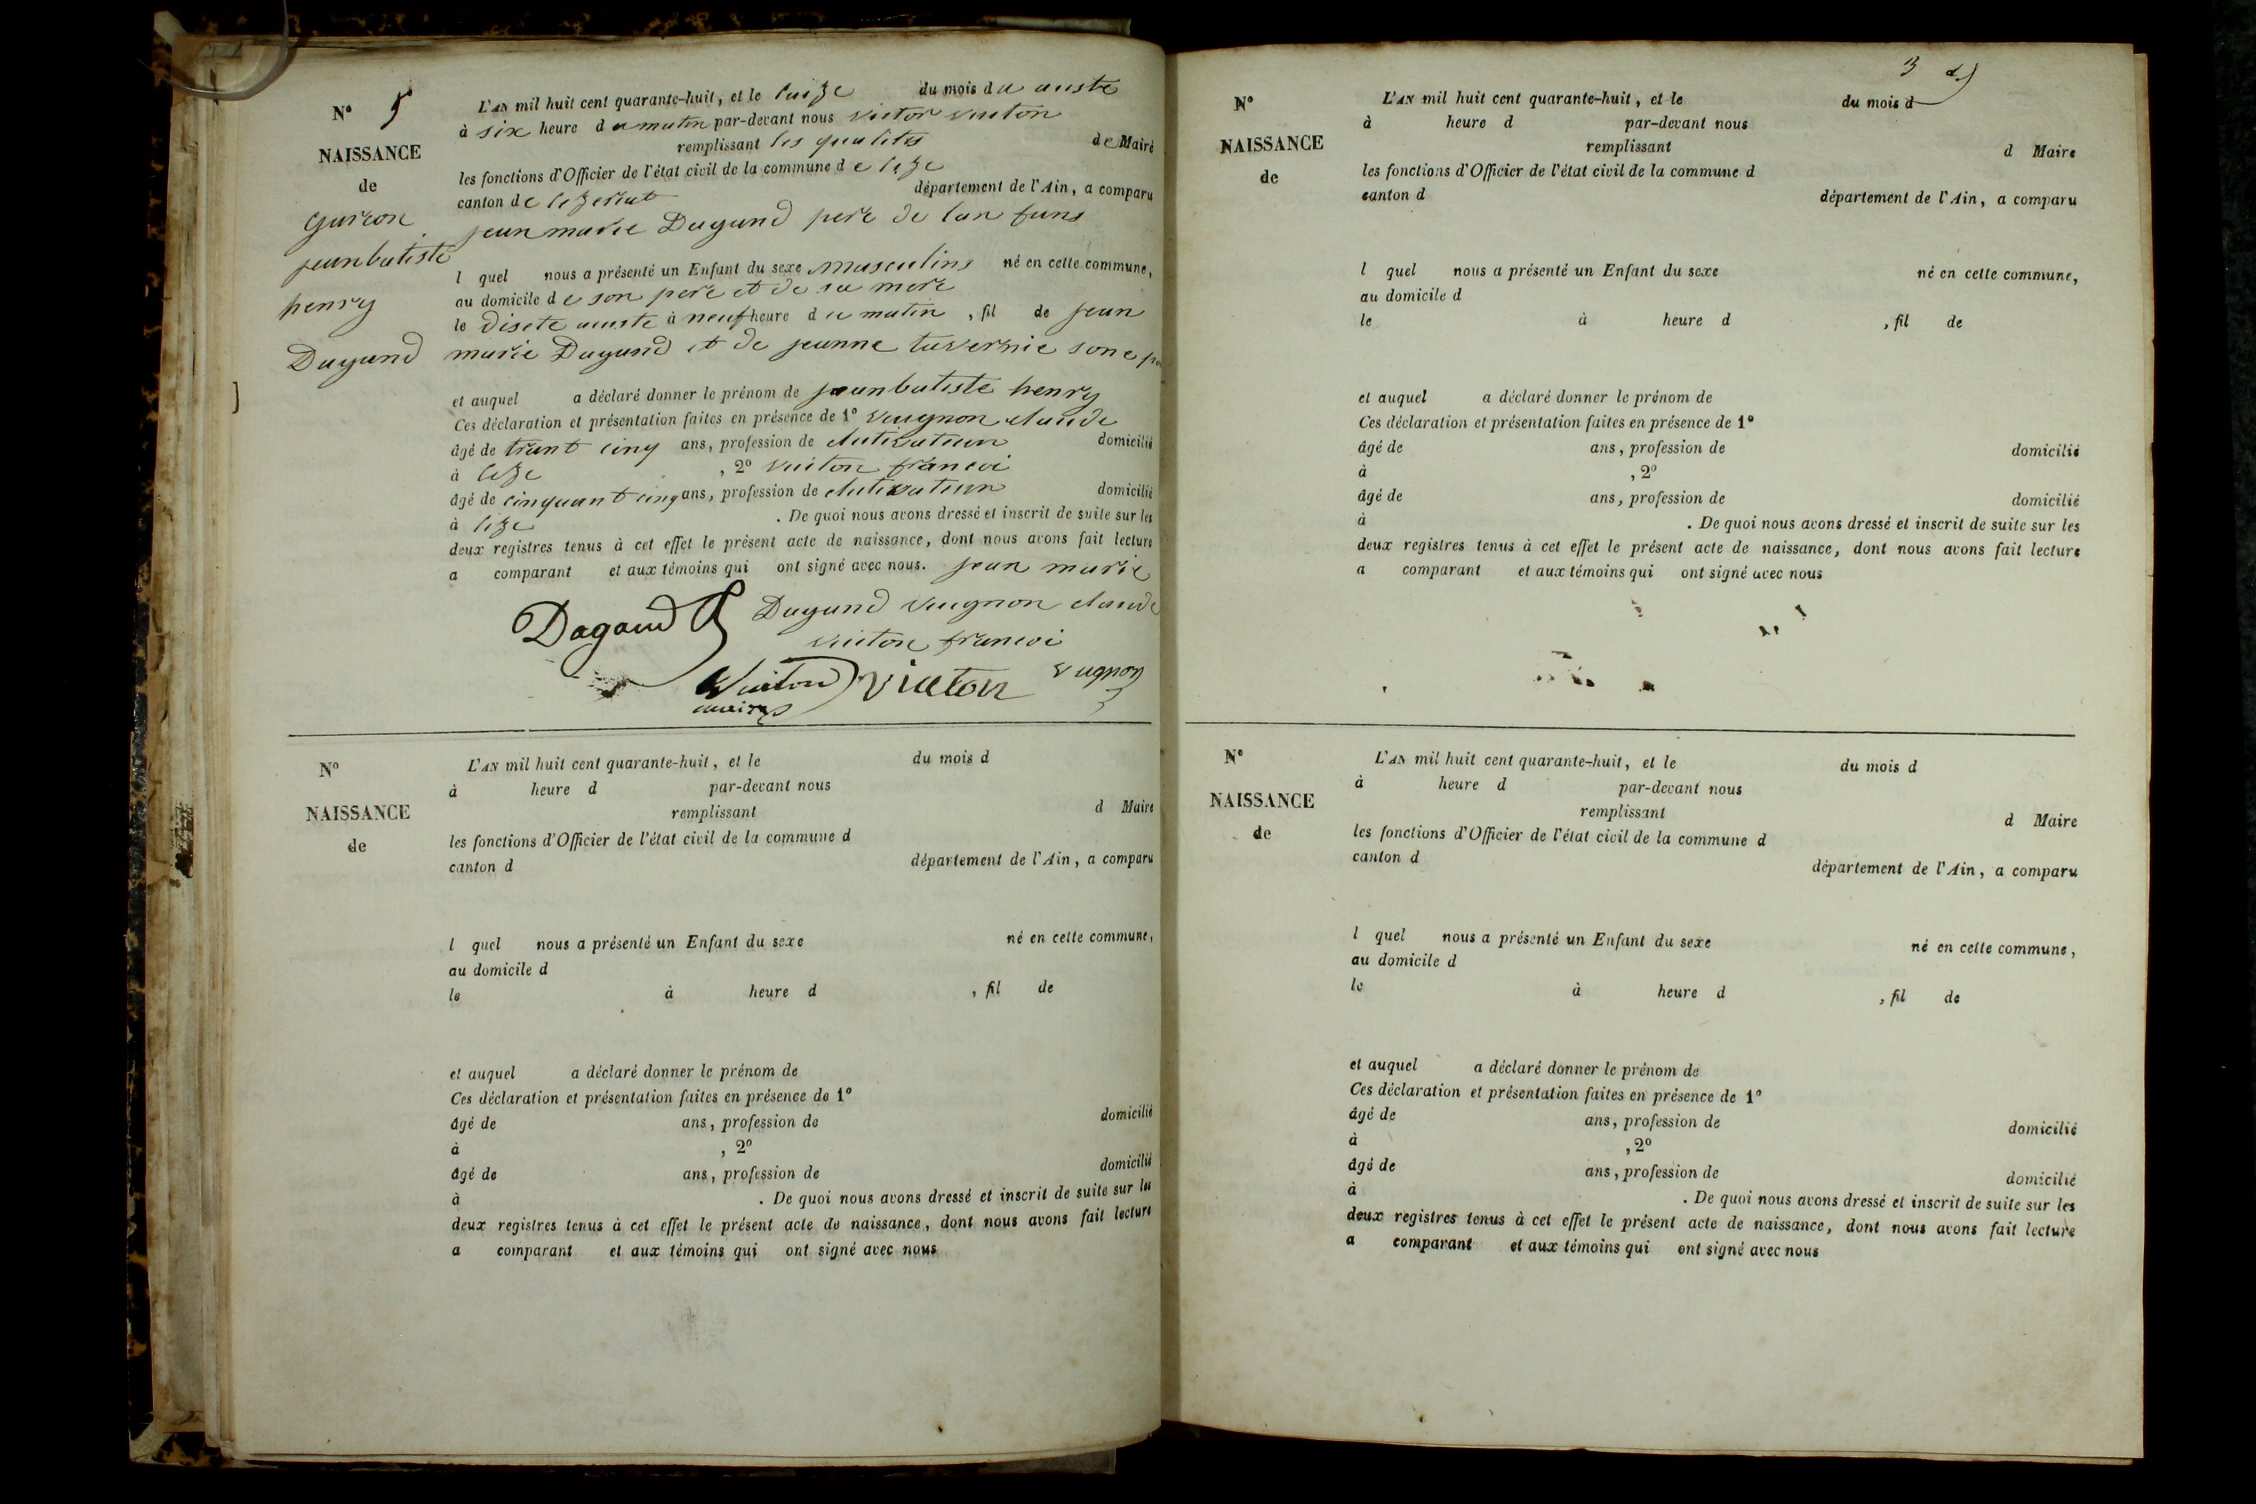 N° 5
NAISSANCE
de
garcon
jeanbatiste
henry
Dagand
L'AN mil huit cent quarante-huit, et le du mois d u auste
à six heure d u matin par-devant nous victor vuiton
remplissant les qualites de Maire
les fonctions d'Officier de l'état civil de la commune d e
canton d e département de l'Ain, a comparu
jean marie Dagand pere de lan fans
l quel nous a présenté un Enfant du sexe masculins né en cette commune,
au domicile d e son pere et de sa mere
le disete auste à neuf heure d u matin , fil de jean
marie Dagand et de jeanne tavernie
et auquel a déclaré donner le prénom de jeanbatiste henry
Ces déclaration et présentation faites en présence de 1° vugnon claude
âgé de trant cinq ans, profession de domicilié
à , 2° vuiton francoi
âgé de cinquant cinq ans, profession de domicilié
à . De quoi nous avons dressé et inscrit de suite sur les
deux registres tenus à cet effet le présent acte de naissance, dont nous avons fait lecture
a comparant et aux témoins qui ont signé avec nous. jean marie
Dagand vugnon claude
vuiton francoi
Dagand
Vuiton vuiton vugnon
maire
N°
NAISSANCE
de
L'AN mil huit cent quarante-huit, et le du mois d
à heure d par-devant nous
remplissant d Maire
les fonctions d'Officier de l'état civil de la commune d
canton d département de l'Ain, a comparu
l quel nous a présenté un Enfant du sexe né en cette commune,
au domicile d
le à heure d , fil de
et auquel a déclaré donner le prénom de
Ces déclaration et présentation faites en présence de 1°
âgé de ans, profession de domicilié
à , 2°
âgé de ans, profession de domicilié
à . De quoi nous avons dressé et inscrit de suite sur les
deux registres tenus à cet effet le présent acte de naissance, dont nous avons fait lecture
a comparant et aux témoins qui ont signé avec nous
3
N°
NAISSANCE
de
L'AN mil huit cent quarante-huit, et le du mois d
à heure d par-devant nous
remplissant d Maire
les fonctions d'Officier de l'état civil de la commune d
canton d département de l'Ain, a comparu
l quel nous a présenté un Enfant du sexe né en cette commune,
au domicile d
le à heure d , fil de
et auquel a déclaré donner le prénom de
Ces déclaration et présentation faites en présence de 1°
âgé de ans, profession de domicilié
à , 2°
âgé de ans, profession de domicilié
à . De quoi nous avons dressé et inscrit de suite sur les
deux registres tenus à cet effet le présent acte de naissance, dont nous avons fait lecture
a comparant et aux témoins qui ont signé avec nous
N°
NAISSANCE
de
L'AN mil huit cent quarante-huit, et le du mois d
à heure d par-devant nous
remplissant d Maire
les fonctions d'Officier de l'état civil de la commune d
canton d département de l'Ain, a comparu
l quel nous a présenté un Enfant du sexe né en cette commune,
au domicile d
le à heure d , fil de
et auquel a déclaré donner le prénom de
Ces déclaration et présentation faites en présence de 1°
âgé de ans, profession de domicilié
à , 2°
âgé de ans, profession de domicilié
à . De quoi nous avons dressé et inscrit de suite sur les
deux registres tenus à cet effet le présent acte de naissance, dont nous avons fait lecture
a comparant et aux témoins qui ont signé avec nous